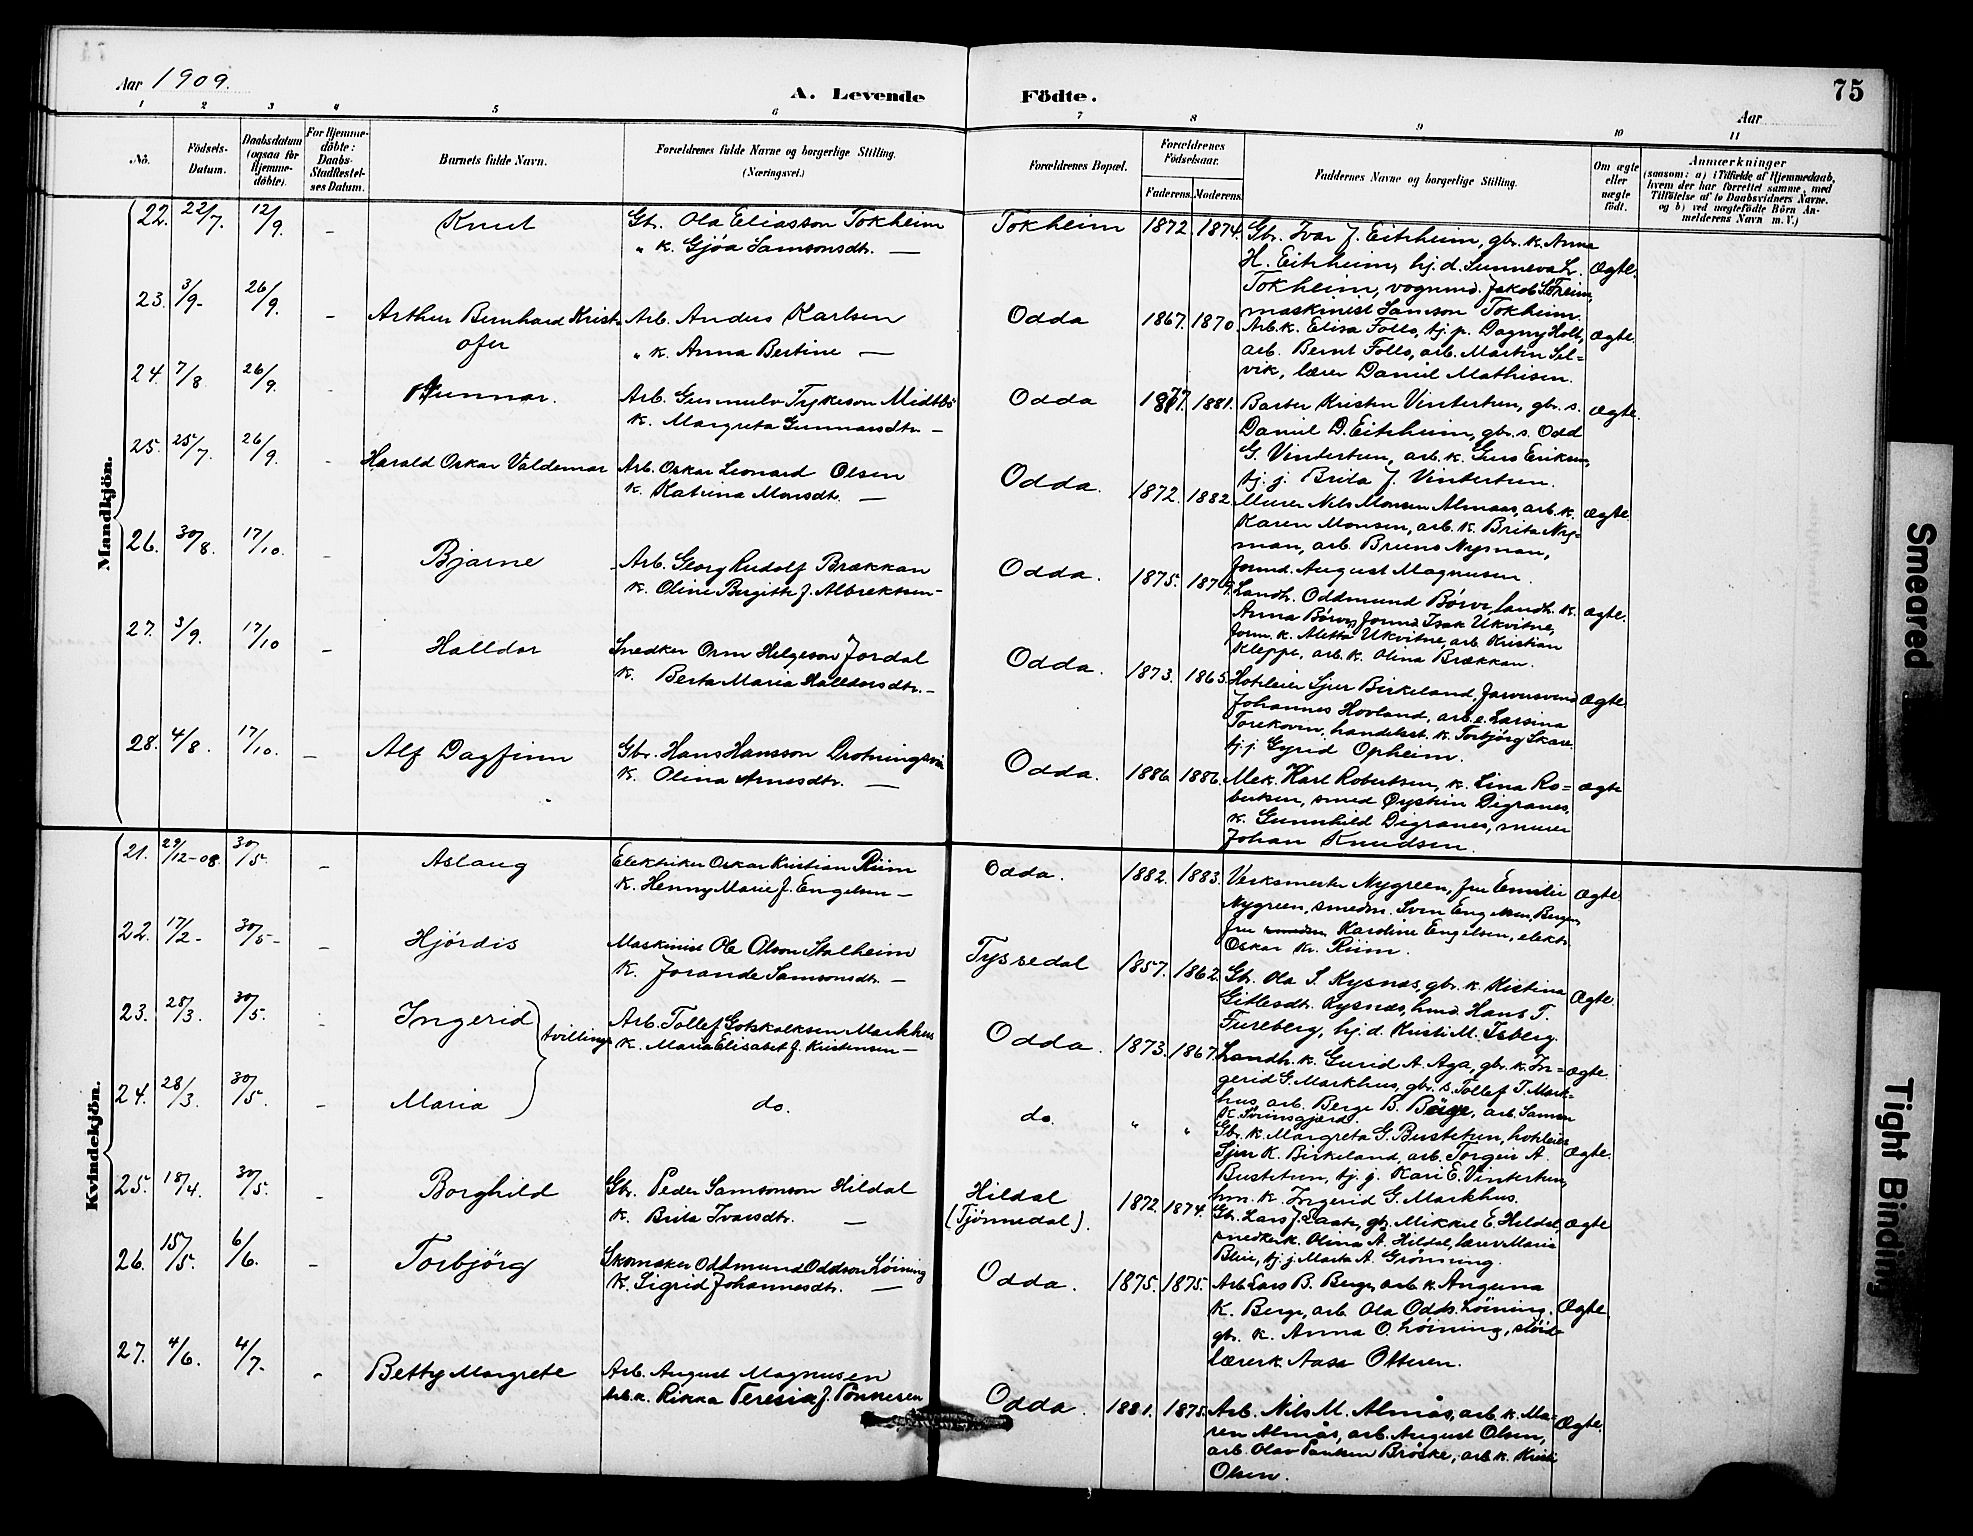 Aar 1909.
A. Levende Födte.
75
Aar
1 2 3 4 5 6 7 8 9 10 11
No.
Födsels-Datum.
Daabsdatum (ogsaa for Hjemme-döbte).
For Hjemme-döbte: Daabs-Stadfæstel-ses Datum.
Barnets fulde Navn.
Forældrenes fulde Navne og borgerlige Stilling. (Næringsvei.)
Forældrenes Bopæl.
Forældrenes Födselsaar.
Faderens. Moderens.
Faddernes Navne og borgerlige Stilling.
Om ægte eller uægte födt.
Anmærkninger
(saasom: a) i Tilfælde af Hjemmedaab,
hvem der har forrettet samme, med
Tilföielse af to Daabsvidners Navne.
og b) ved uægtefödte Börn An-
melderens Navn m. V.)
Mandkjön.
22. 22/7. 12/9. - Knut
Gbr. Ola Eliasson Tokheim
" k. Gjöa Samsonsdtr. —
Tokheim 1872. 1874.
Gbr. Ivar J. Eitrheim, gbr. k. Anna
H. Eitrheim, hj.d. Sunneva L.
Tokheim, vognmd. Jakob S. Freim,
maskinist Samson Tokheim.
Ægte.
23. 3/9- 26/9. - Arthur Bernhard Krist-
ofer
Arb. Anders Karlsen
" k. Anna Bertine —
Odda 1867. 1870.
Arb. k. Elisa Follo, tj. p. Dagny Holt,
arb. Bernt Follo, arb. Martin Sel-
vik, lærer Daniel Mathisen.
Ægte.
24. 7/8. 26/9. - Gunnar.
Arb. Gunnulv Tykeson Midtbö
k. Margreta Gunnarsdtr. —
Odda 1877. 1881.
Barber Kristen Vintertun, gbr. s.
Daniel D. Eitrheim, gbr. s. Odd
G. Vintertun, arb. k. Guro Eriksen,
tj. j. Brita J. Vintertun.
Ægte.
25. 25/7. 26/9. - Harald Oskar Valdemar
Arb. Oskar Leonard Olsen
k. Katrina Monsdtr. —
Odda. 1872. 1882.
Murer Nils Monsen Almaas, arb. k.
Karen Monsen, arb. k. Brita Nys-
man, arb. Bruno Nysman,
formd. August Magnusen.
Ægte.
26. 30/8. 17/10. - Bjarne
Arb. Georg Rudolf Brækkan
k. Oline Birgitte f. Albrektsen —
Odda. 1875. 1879.
Landh. Oddmund Börve, landh. k.
Anna Börve, formd. Isak Ukvitne,
form. k. Aletta Ukvitne, arb. Kristian
Kleppe, arb. k. Olina Brækkan.
Ægte.
27. 3/9. 17/10 - Halldor
Snedker Orm Helgeson Jordal
k. Berta Maria Halldorsdtr. —
Odda. 1873. 1865.
Hoteleier Sjur Birkeland, farversvend
Johannes Hovland, arb. e. Larsina
Torekovin, handelsst. k. Torbjörg Skare.
tj. j. Gyrid Opheim.
Ægte.
28. 4/8. 17/10. - Alf Dagfinn
Gbr. Hans Hansson Drotningsvik
k. Olina Arnesdtr. —
Odda. 1886. 1886.
Mek. Karl Robertsen, k. Lina Ro-
bertsen, smed Øystein Digranes,
k. Gunnhild Digranes, murer
Johan Knudsen.
Ægte
Kvindekjön.
21. 29/12-08. 30/5. - Aslaug
Elektriker Oskar Kristian Riim
k. Henny Marie f. Engelsen —
Odda. 1882. 1883.
Verksmester Nygreen, fru Emilie
Nygreen, smedm. Sven Engelsen, Bergen,
fru Kardine Engelsen, elektr.
Oskar Kr. Riim.
Ægte.
22. 17/2- 30/5- - Hjördis
Maskinist Ole Olson Stalheim
k. Jorande Samsonsdtr. —
Tyssedal 1857. 1862.
Gbr. Ola S. Kysnes, gbr. k. Kristina
Gitlesdtr. Kysnes, hmd. Hans T.
Fureberg, hj.d. Kristi M. Isberg.
Ægte.
23. 28/3. 30/5. - Ingerid
tvillinger
Arb. Tollef Gotskalksen Markhus
k. Maria Elisabet f. Kristensen —
Odda. 1873. 1867.
Landh. k. Gurid A. Aga, gbr. k. In-
gerid G. Markhus, gbr. s. Tollef T. Mark-
hus, arb. Berge B. Berge, arb. Samson
K. Sörinsgjerd.
Ægte.
24. 28/3. 30/5. - Maria
do.
do. " "
Gbr. k. Margreta G. Bustetun, hoteleier
Sjur K. Birkeland, arb. Torgeir A.
Bustetun, tj. j. Kari E. Vintertun,
hm. k. Ingerid G. Markhus.
Ægte.
25. 18/4. 30/5. - Borghild
Gbr. Peder Samsonson Hildal
k. Brita Ivarsdtr. —
Hildal
(Tjönnedal). 1872. 1874.
Gbr. Lars J. Saate, gbr. Mikkel E. Hildal,
snedker k. Olina A. Hildal, lærer Maria
Bleie, tj. j. Marta A. Grönning.
Ægte
26. 15/5. 6/6. - Torbjörg
Skomaker Oddmund Oddson Löining
k. Sigrid Johannesdtr. —
Odda. 1875. 1875.
Arb. Lars B. Berge, arb. k. Anguna
K. Berge, arb. Ola Odds. Löining,
gbr. k. Anna O. Löining, slöid-
lærer k. Aasa Otteren.
Ægte.
27. 4/6. 4/7. - Betty Margrete
Arb. August Magnusen
Arb. k. Rikka Teresia f. Tönnesen
Odda. 1881. 1875.
Arb. Nils M. Almås, arb. k. Ma-
ren Almås, arb. August Olsen,
arb. Olav Paulsen Bröske, arb. k. Kristi
Olsen.
Ægte.
Smeared
Tight Binding